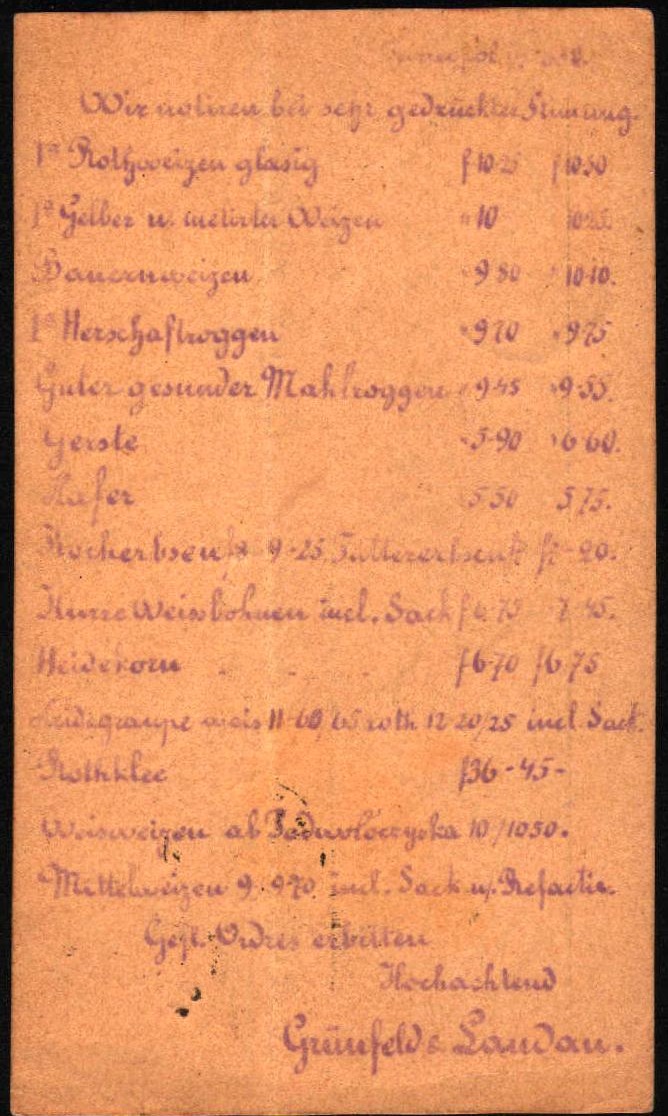 Wir notiren bei sehr gedrückter Stimmung.
1ª Rothweizen glasig f 10·25 f 10·50
1ª Gelber u. melirter Weizen " 10 10·25.
Bauernweizen " 9·80 " 10·10.
1ª Herschaftroggen " 9·70 " 9·75
Guter gesunder Mahlroggen " 9·45 " 9·55.
Gerste " 5·90 " 6·60.
Hafer 5·50 5·75.
Kocherbsen 9·25 Futtererbsen f 7·20.
Kurze Weissbohnen incl. Sack f 6·75 7·45.
Heidekorn f 6·70 f 6·75
Heidegraupe weis 11·60/65 roth 12·20/25 incl. Sack.
Rothklee f 36-45-
Weisweizen ab Podwołoczyska 10/10 50.
Mittelweizen 9. 9·70 incl. Sack u. Refactie.
Gefl. Ordres erbitten
Hochachtend
Grünfeld & Landau.